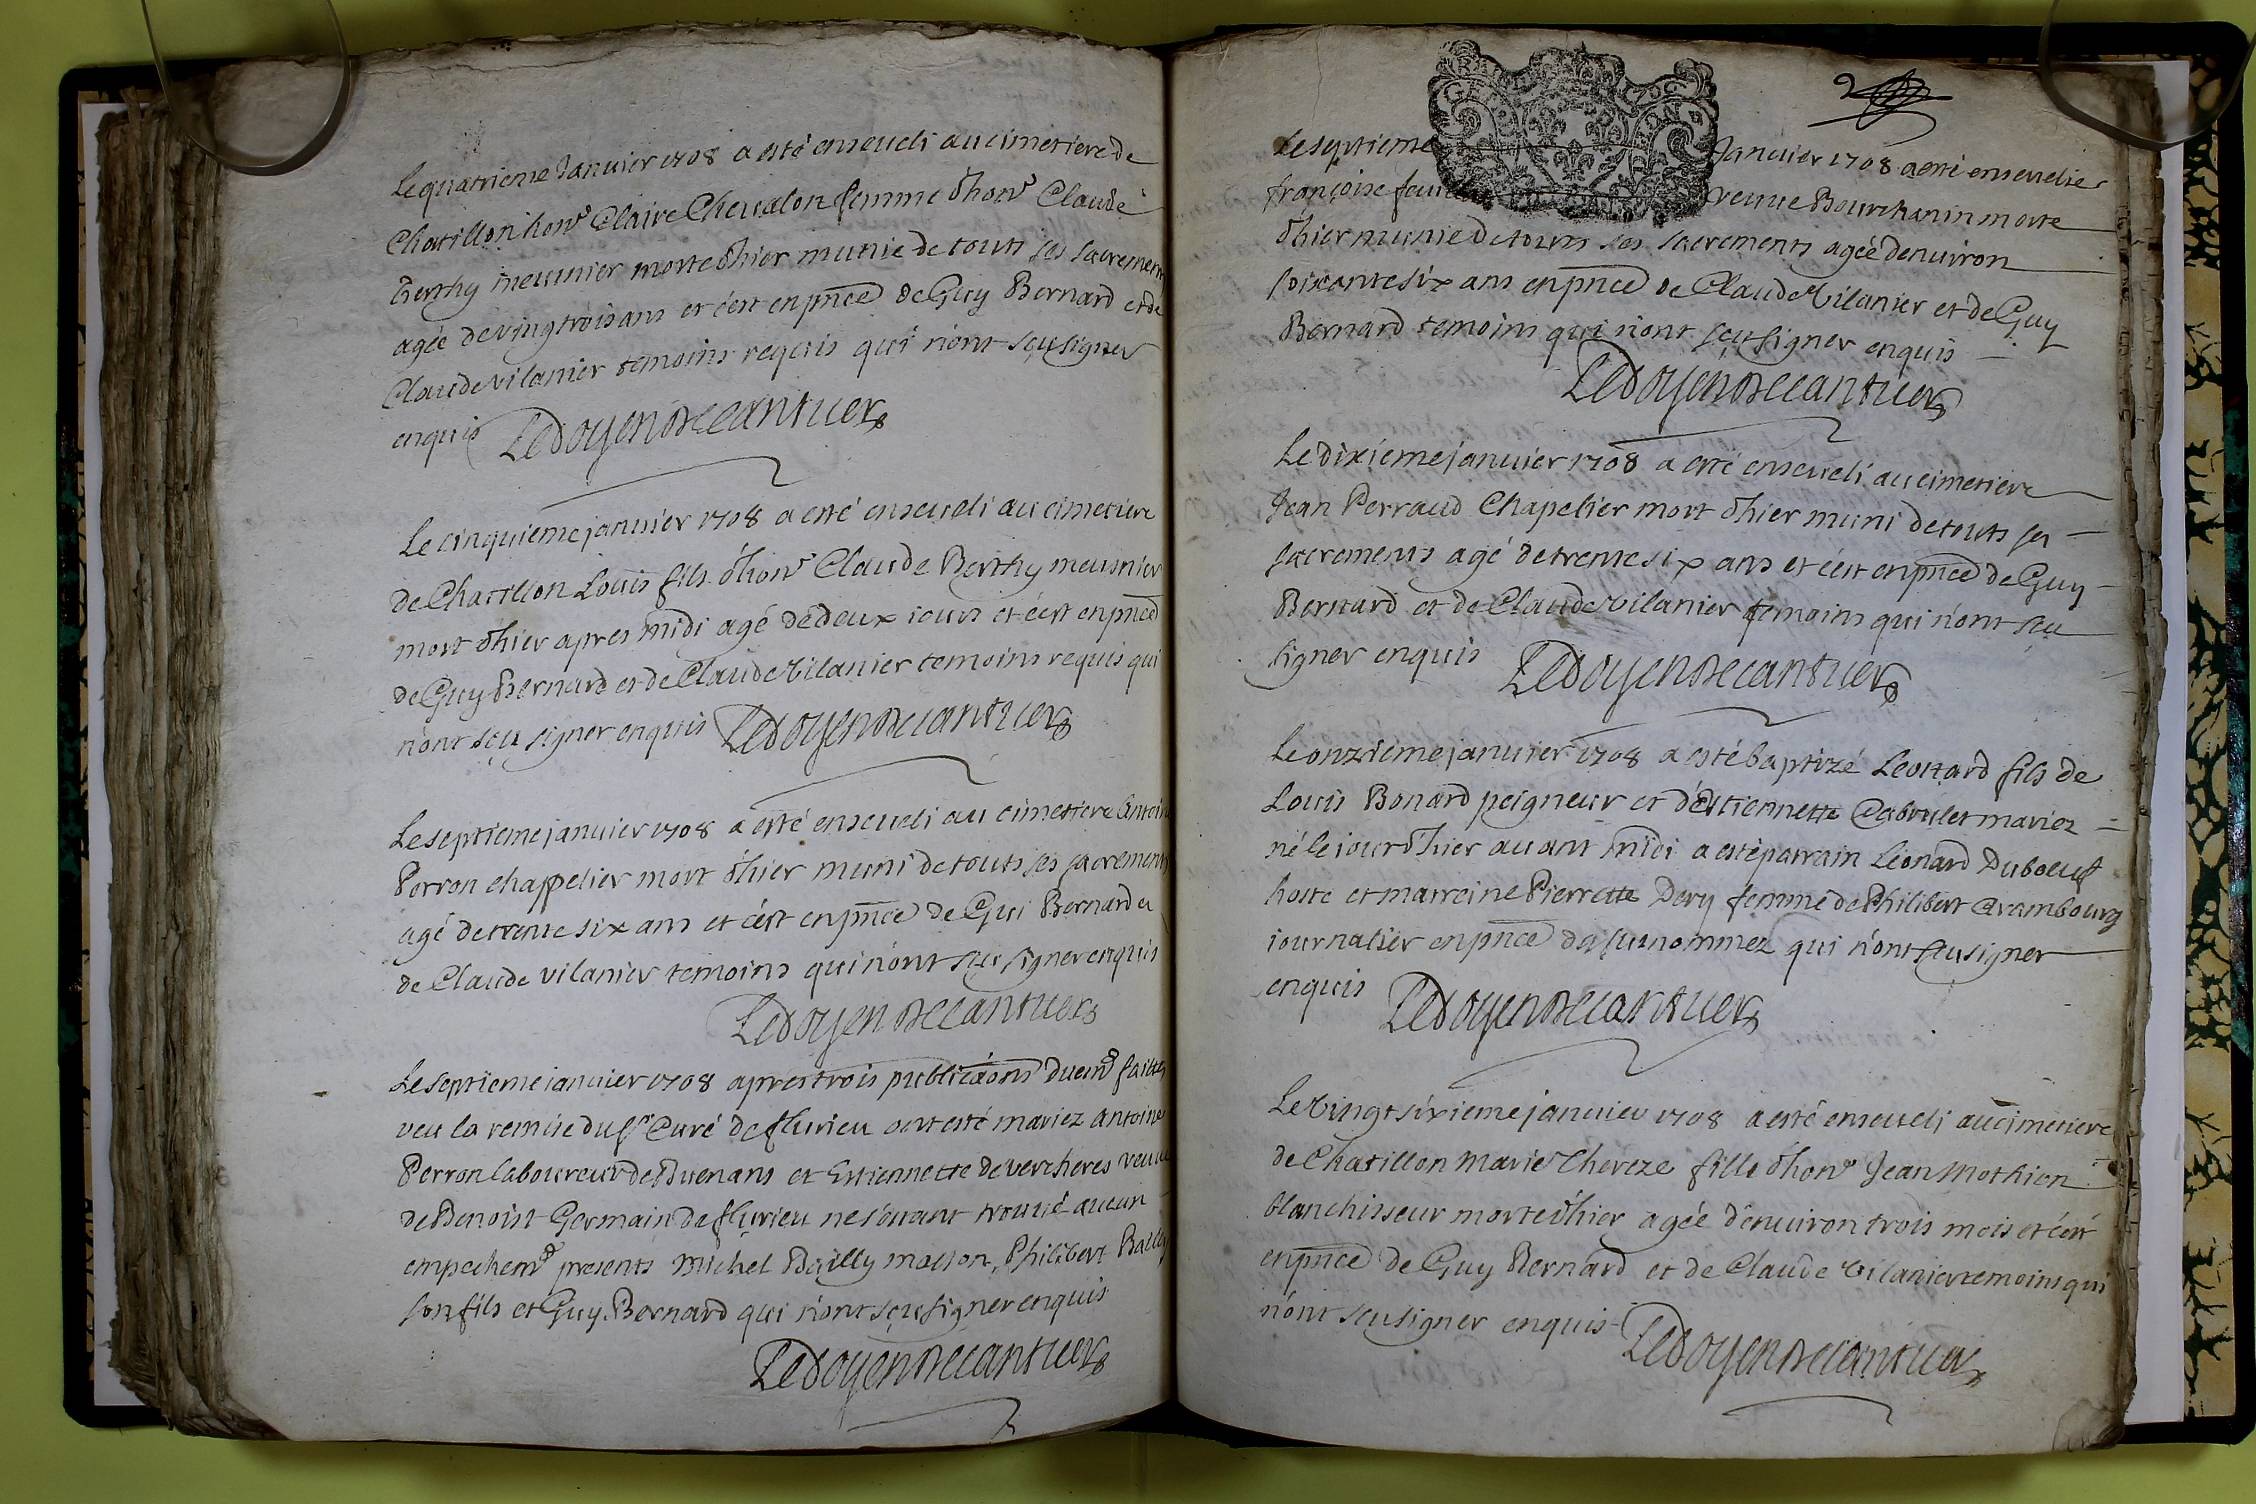 Le quatrieme Janvier 1708 a esté enseveli au cimetiere de
Chatillon hon^e Claire Chevalon femme d'hon^e Claude
Berthy meunier morte d'hier munie de touts ses sacrements
agée de vingtrois ans et c'est en pnce de Guy Bernard et de
Claude vilanier temoins requis qui n'ont sçu signer
enquis Ledoyen De Cantuer
Le cinquieme janvier 1708 a esté enseveli au cimetiere
de Chatillon Louis fils d'hon^e Claude Berthy meunier
mort d'hier apres midi agé de deux iours et c'est en pnce
de Guy Bernard et de Claude Vilanier temoins requis qui
n'ont sçu signer enquis Ledoyen De Cantuer
Le septieme janvier 1708 a esté enseveli au cimetiere Antoine
Perron chappelier mort d'hier muni de touts ses sacrements
agé de trente six ans et c'est en pnce de Gui Bernard et
de Claude vilanier temoins qui n'ont sçu signer enquis
Ledoyen De Cantuer
Le septieme janvier 1708 apres trois publicaons duem^t faittes
veu la remise du s^r Curé de flurieu ont esté mariez Antoine
Perron laboureur de Buenans et Estiennette de vercheres veuve
de Benoist Germain de flurieu ne s'etant trouvé aucun
empechem^t presents Michel Bailly masson, Philibert Bailly
son fils et Guy Bernard qui n'ont sçu signer enquis
Ledoyen De Cantuer
2
Le septieme Janvier 1708 a esté ensevelie
françoise veuve Bourchanin morte
d'hier munie de touts ses sacrements agée denviron
soixante six ans en pnce de Claude Vilanier et de Guy
Bernard temoins qui n'ont sçu signer enquis
Ledoyen De Cantuer
Le dixieme janvier 1708 a esté enseveli au cimetiere
Jean Perraud Chapelier mort d'hier muni de touts ses
sacrements agé de trente six ans et c'est en pnce de Guy
Bernard et de Claude Vilanier temoins qui n'ont sçu
signer enquis Ledoyen De Cantuer
Le onzrieme janvier 1708 a esté baptizé Leonard fils de
Louis Bonard peigneur et d'Estiennette Cabrulet mariez
né le iour d'hier avant midi a esté parrain Léonard Duboeuf
hoste et marreine Pierrette Dery femme de Philibert Crambourg
iournalier en pnce des sunommez qui n'ont sçu signer
enquis Ledoyen De Cantuer
Le Vingt sixieme janvier 1708 a esté enseveli au cimetiere
de Chatillon Marie Thereze fille d'hon^e Jean Mothion
blanchisseur morte d'hier agée d'environ trois mois et c'est
en pnce de Guy Bernard et de Claude Vilanier temoins qui
n'ont sçu signer enquis Ledoyen De Cantuer